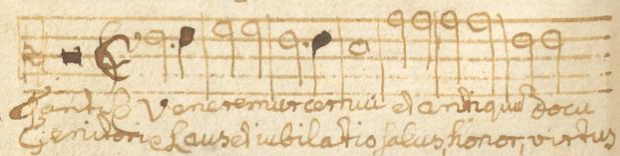 Tantũ Veneremur cernui et antiquũ docu
Genitori Laus et iubilatio salus, honor, virtus